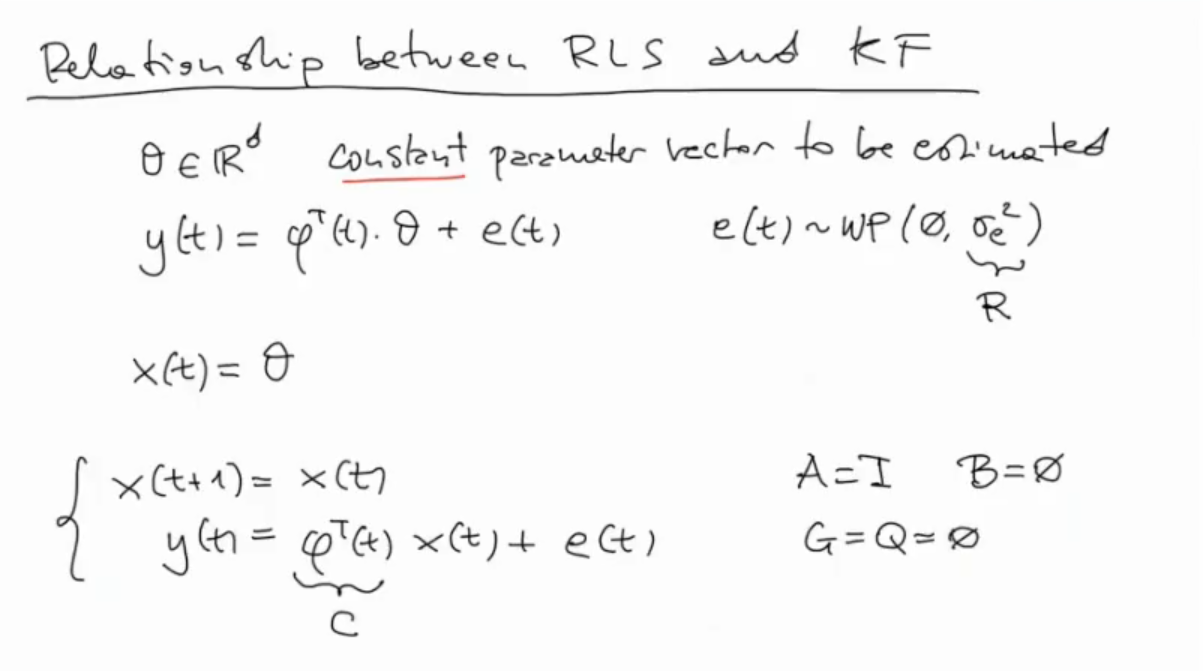 Relationship between RLS and KF
θ ∈ ℝᵈ constant parameter vector to be estimated
y(t) = φᵀ(t) · θ + e(t) e(t) ~ WP(∅, σₑ²)
R
x(t) = θ
x(t+1) = x(t) A = I B = ∅
y(t) = φᵀ(t) x(t) + e(t) G = Q = ∅
C